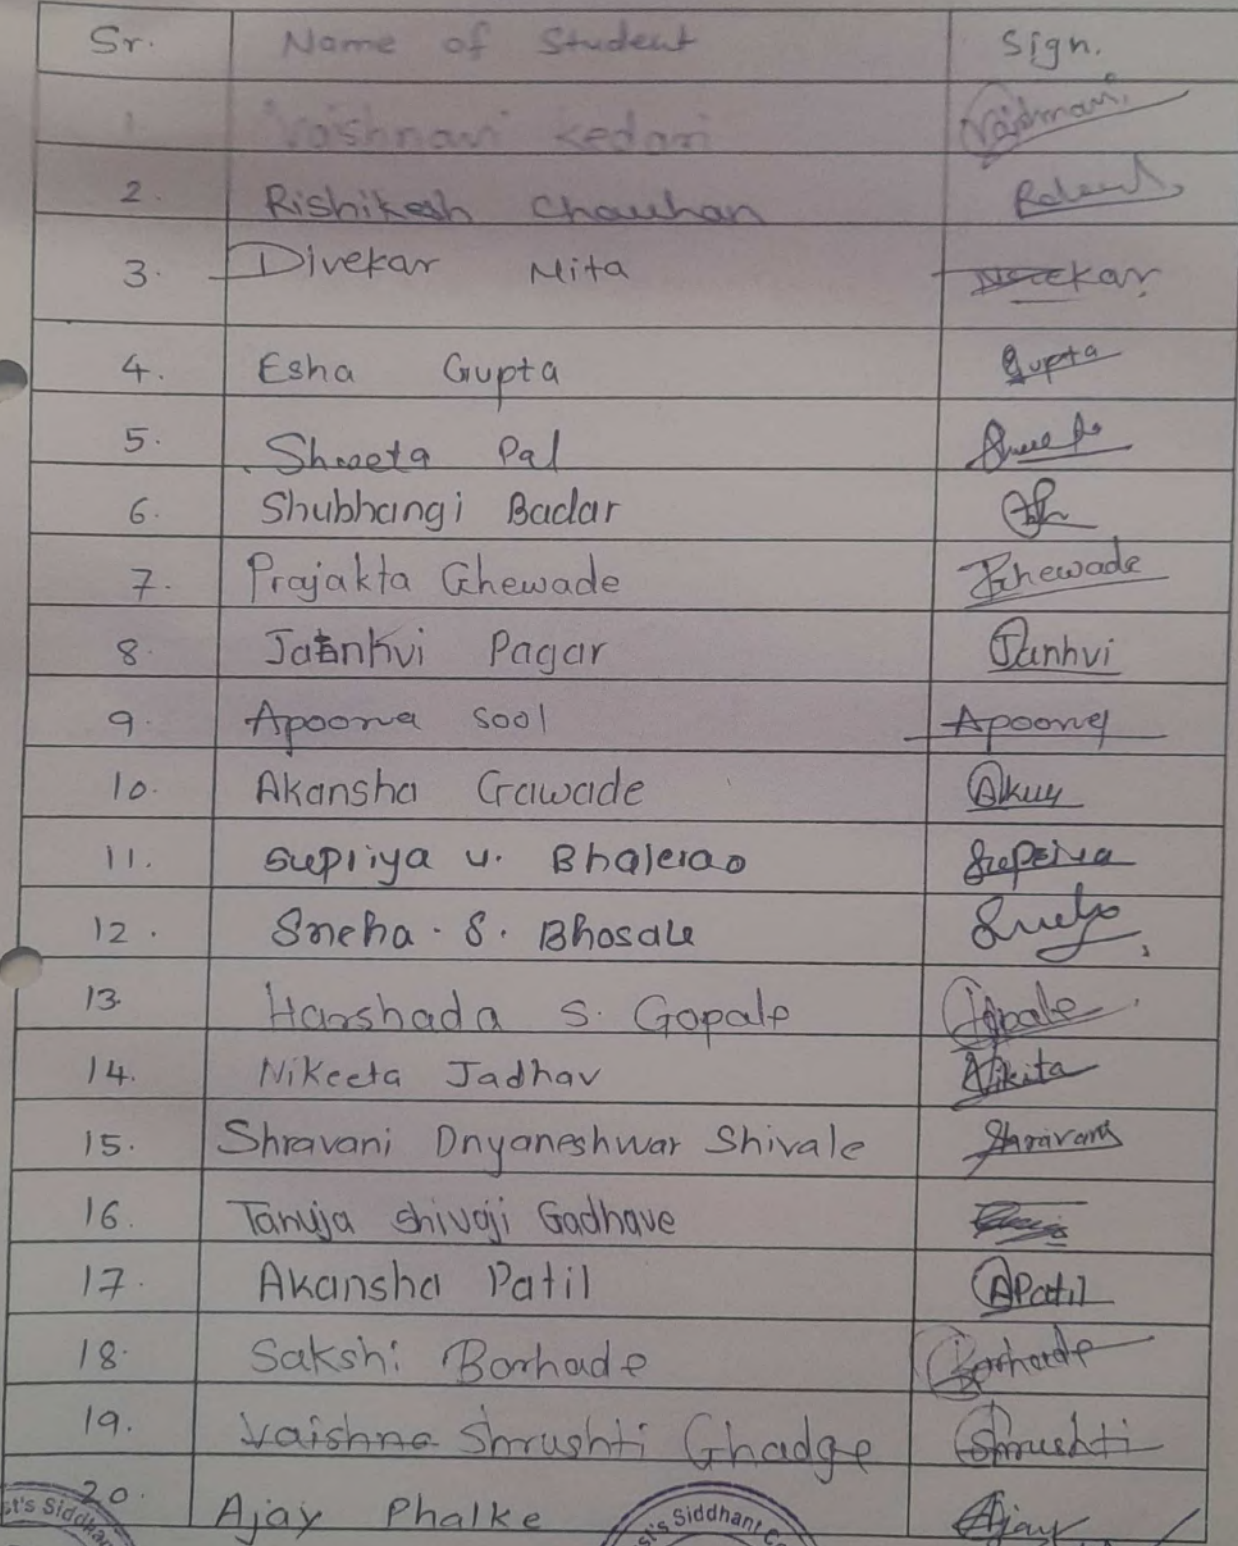 Sr. Name of Student Sign.
1. Vaishnavi Kedari Vaishnavi
2. Rishikesh Chauhan
3. Divekar Nita Divekar
4. Esha Gupta Gupta
5. Shweta Pal Shweta
6. Shubhangi Badar
7. Prajakta Ghewade Ghewade
8. Janhvi Pagar Janhvi
9. Apoorva Sool Apoorva
10. Akansha Gawade
11. Supriya U. Bhalerao Supriya
12. Sneha. S. Bhosale Sneha
13. Harshada S. Gopale Gopale
14. Nikeeta Jadhav Nikita
15. Shravani Dnyaneshwar Shivale Shravani
16. Tanuja Shivaji Gadhave
17. Akansha Patil APatil
18. Sakshi Borhade Borhade
19. Vaishna Shrushti Ghadge Shrushti
20. Ajay Phalke Ajay
st's Siddhan
st's Siddhant Co